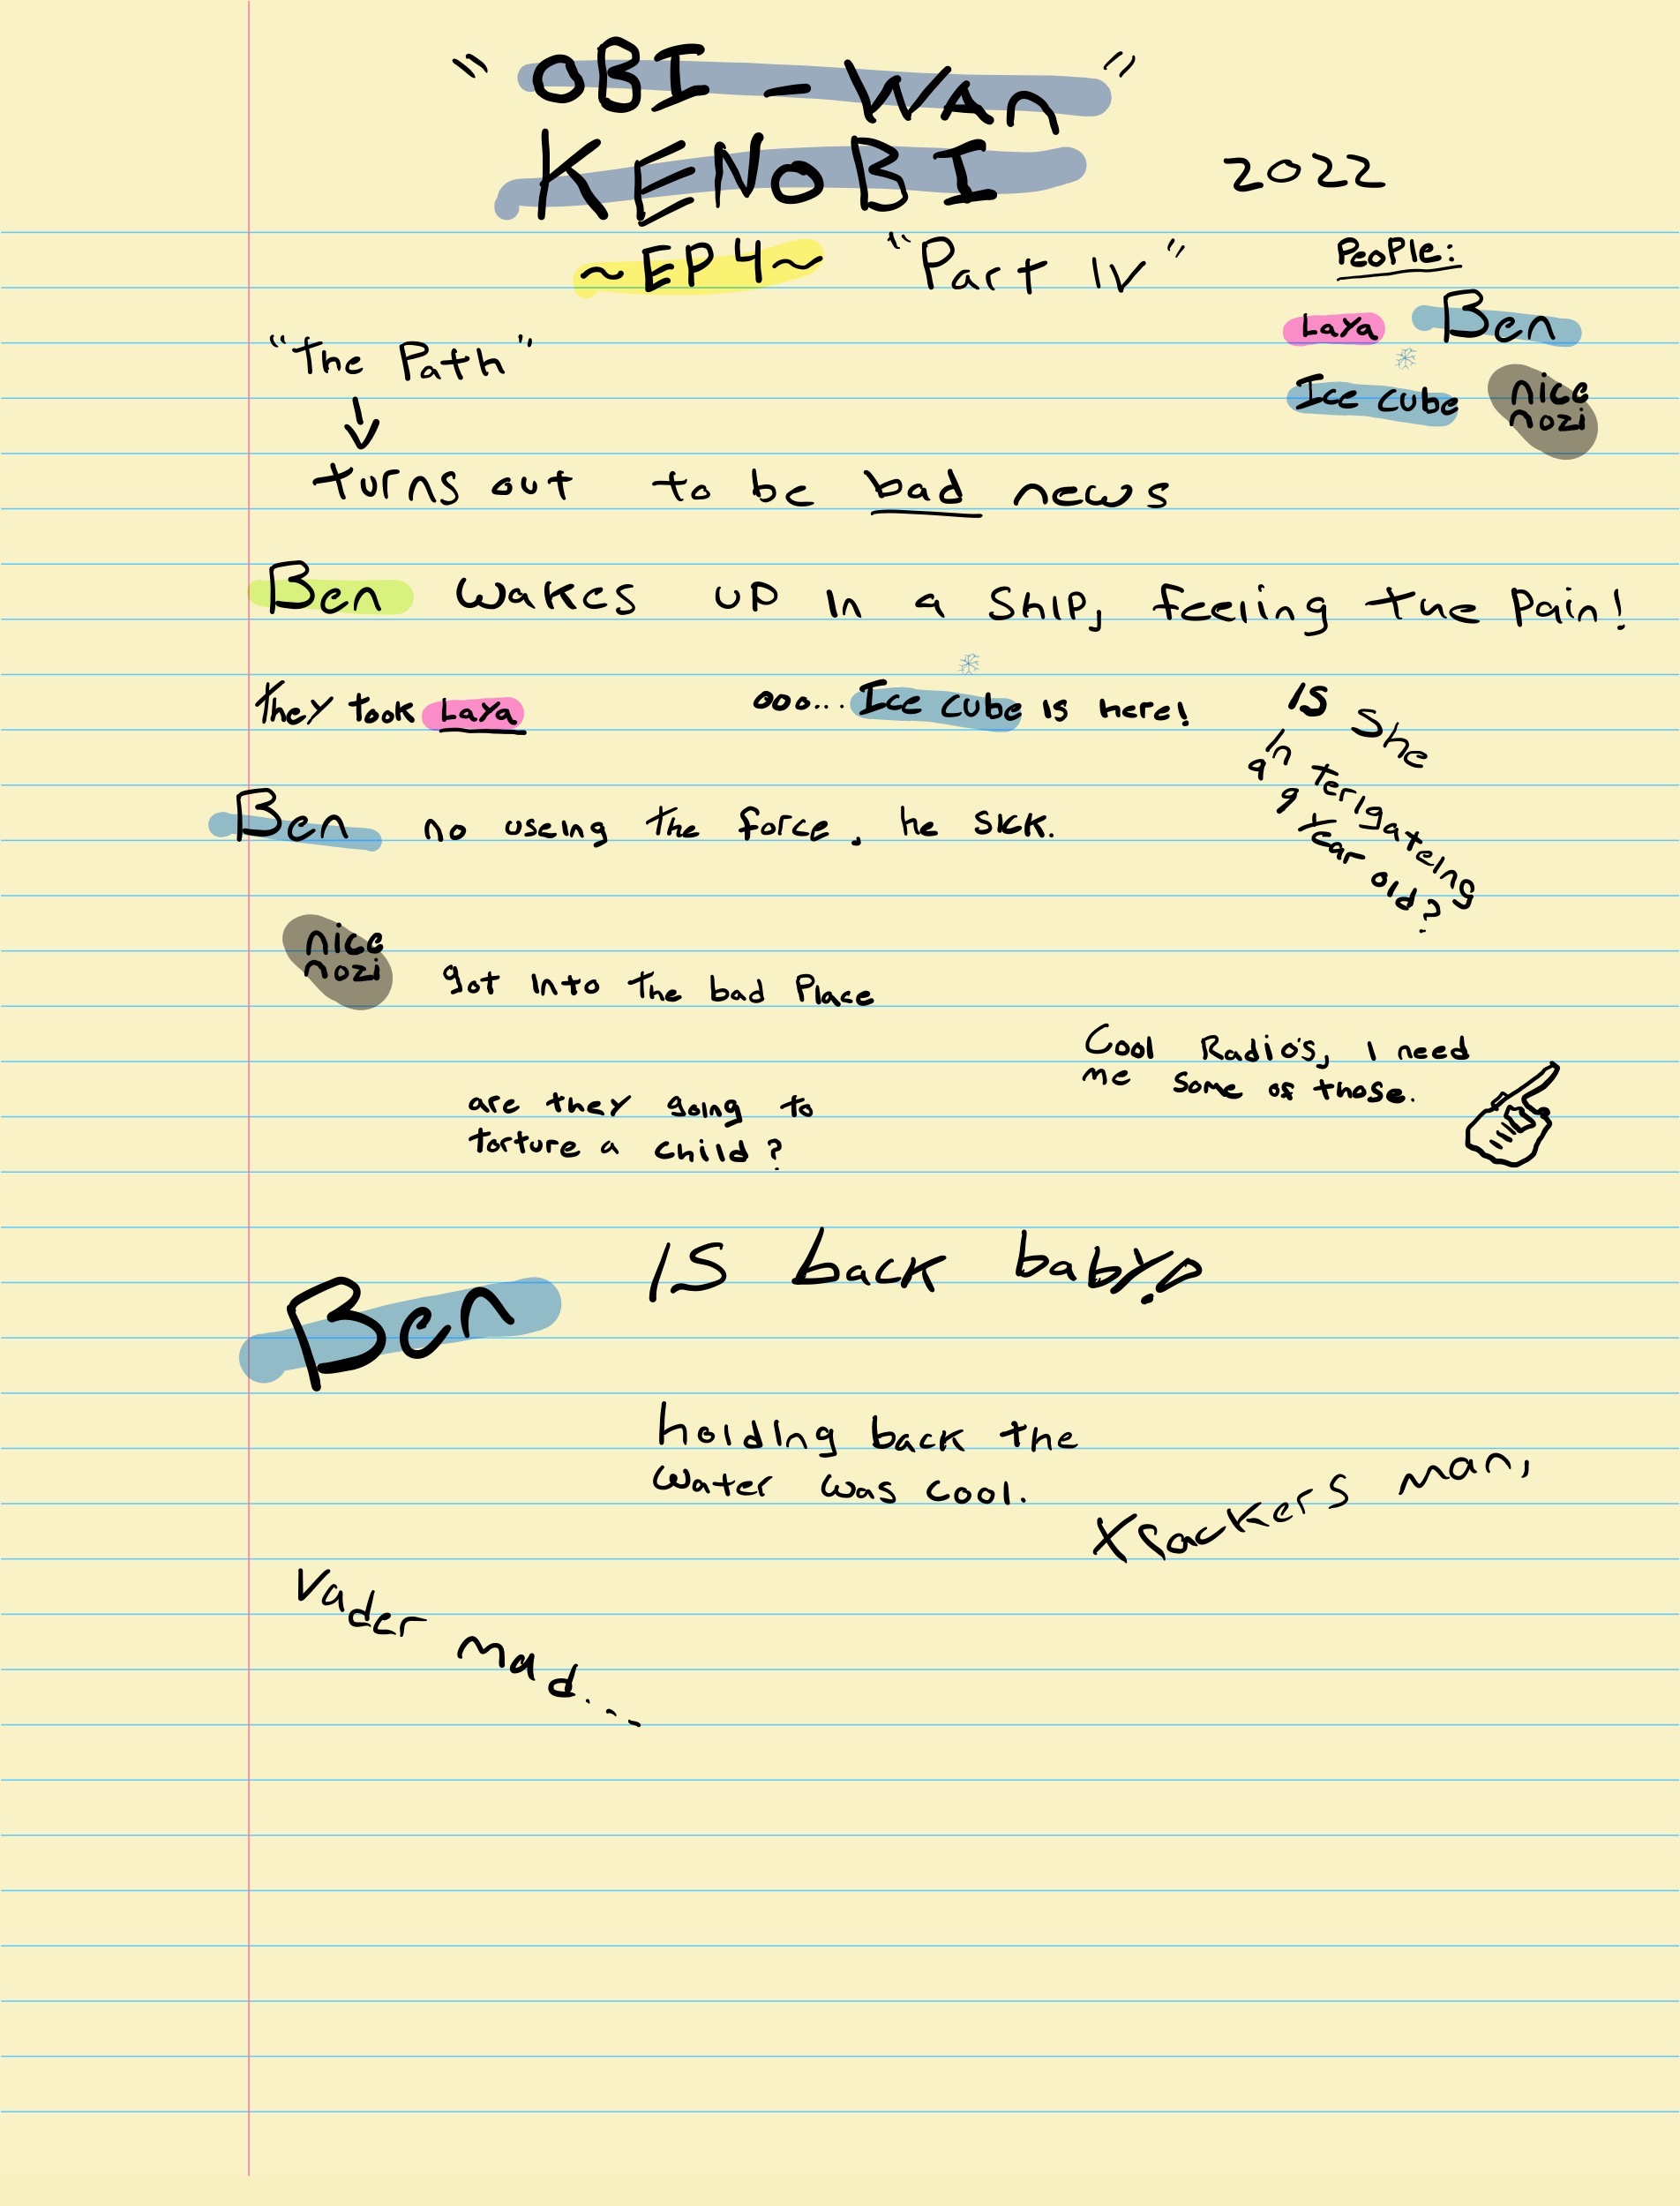 "OBI-WAn"
KENOBI
2022
~EP4~ "Part IV"
PeoPle:
LaYa Ben
Ice cube nice nozi
"The Path"
↓
turns out to be bad news
Ben wakes up in a ship, feeling the pain!
They took LaYa
ooo... Ice cube is here!
Is she
interigateing
a 9 year old?
Ben no useing the force, he sick.
nice
nozi
got into the bad Place
Cool Radio's, I need
me some of those.
are they going to
torture a child?
Ben is back baby!
holding back the
water was cool.
Vader mad...